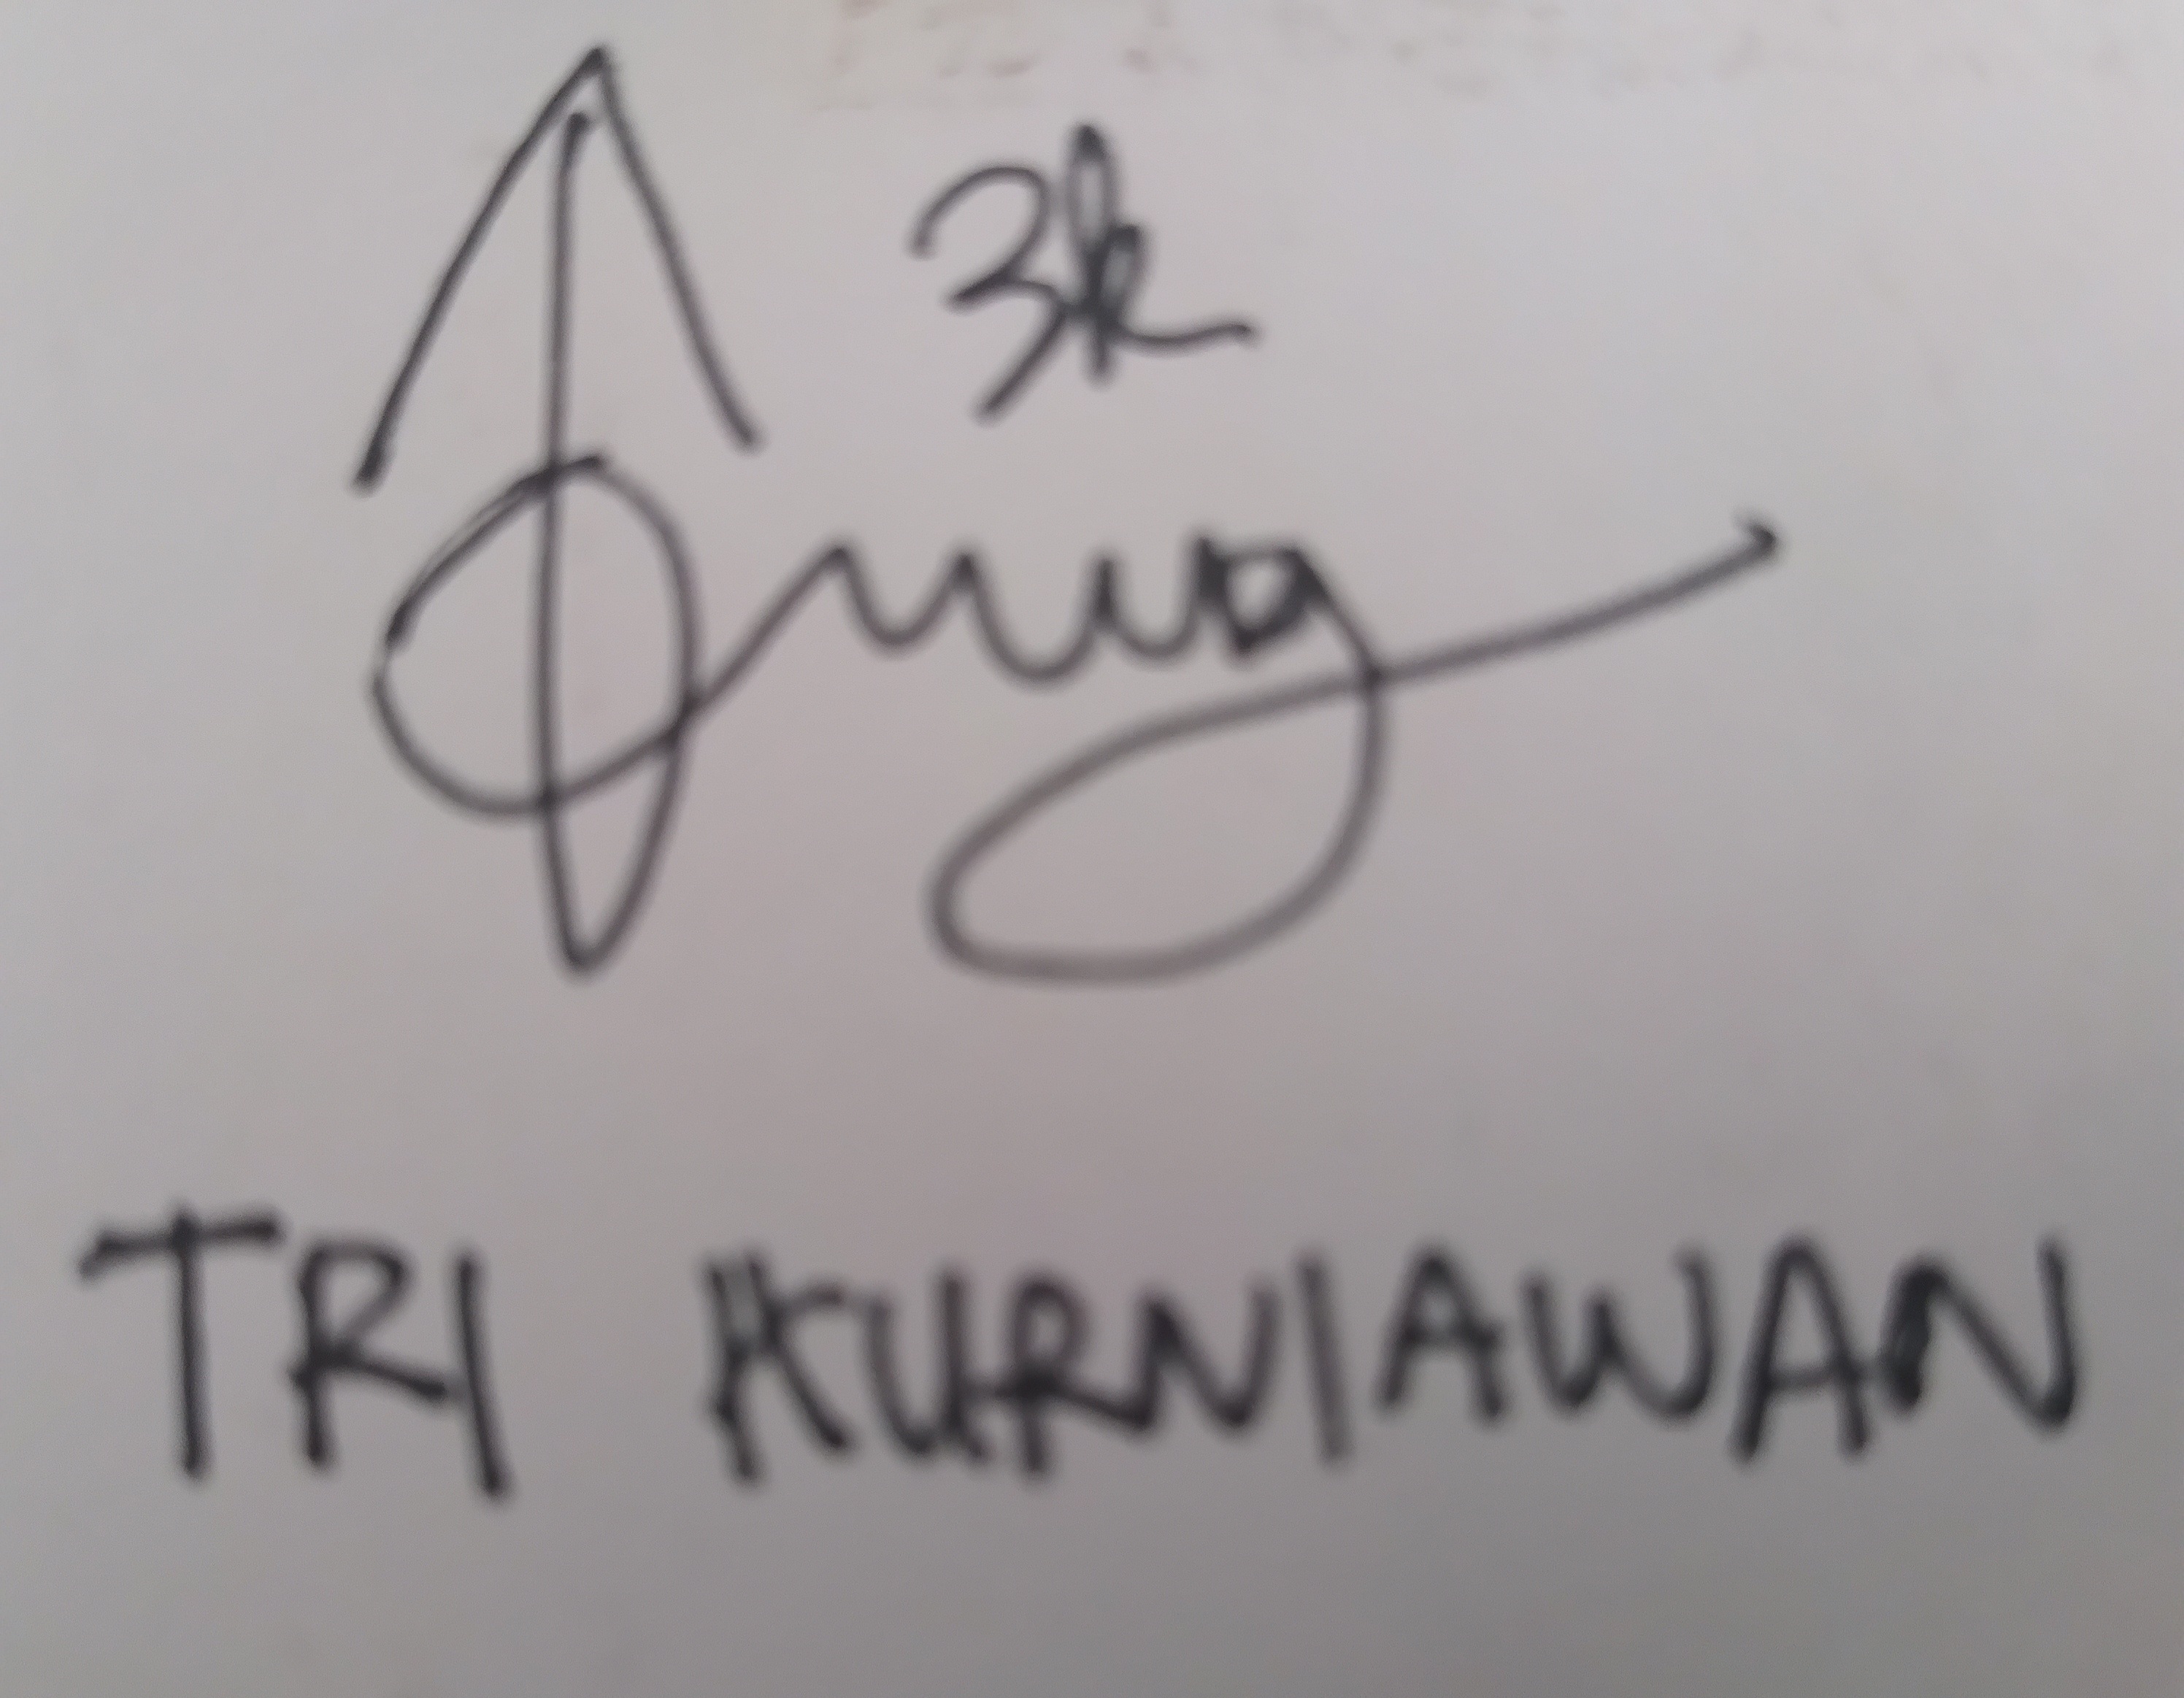 3k
TRI KURNIAWAN